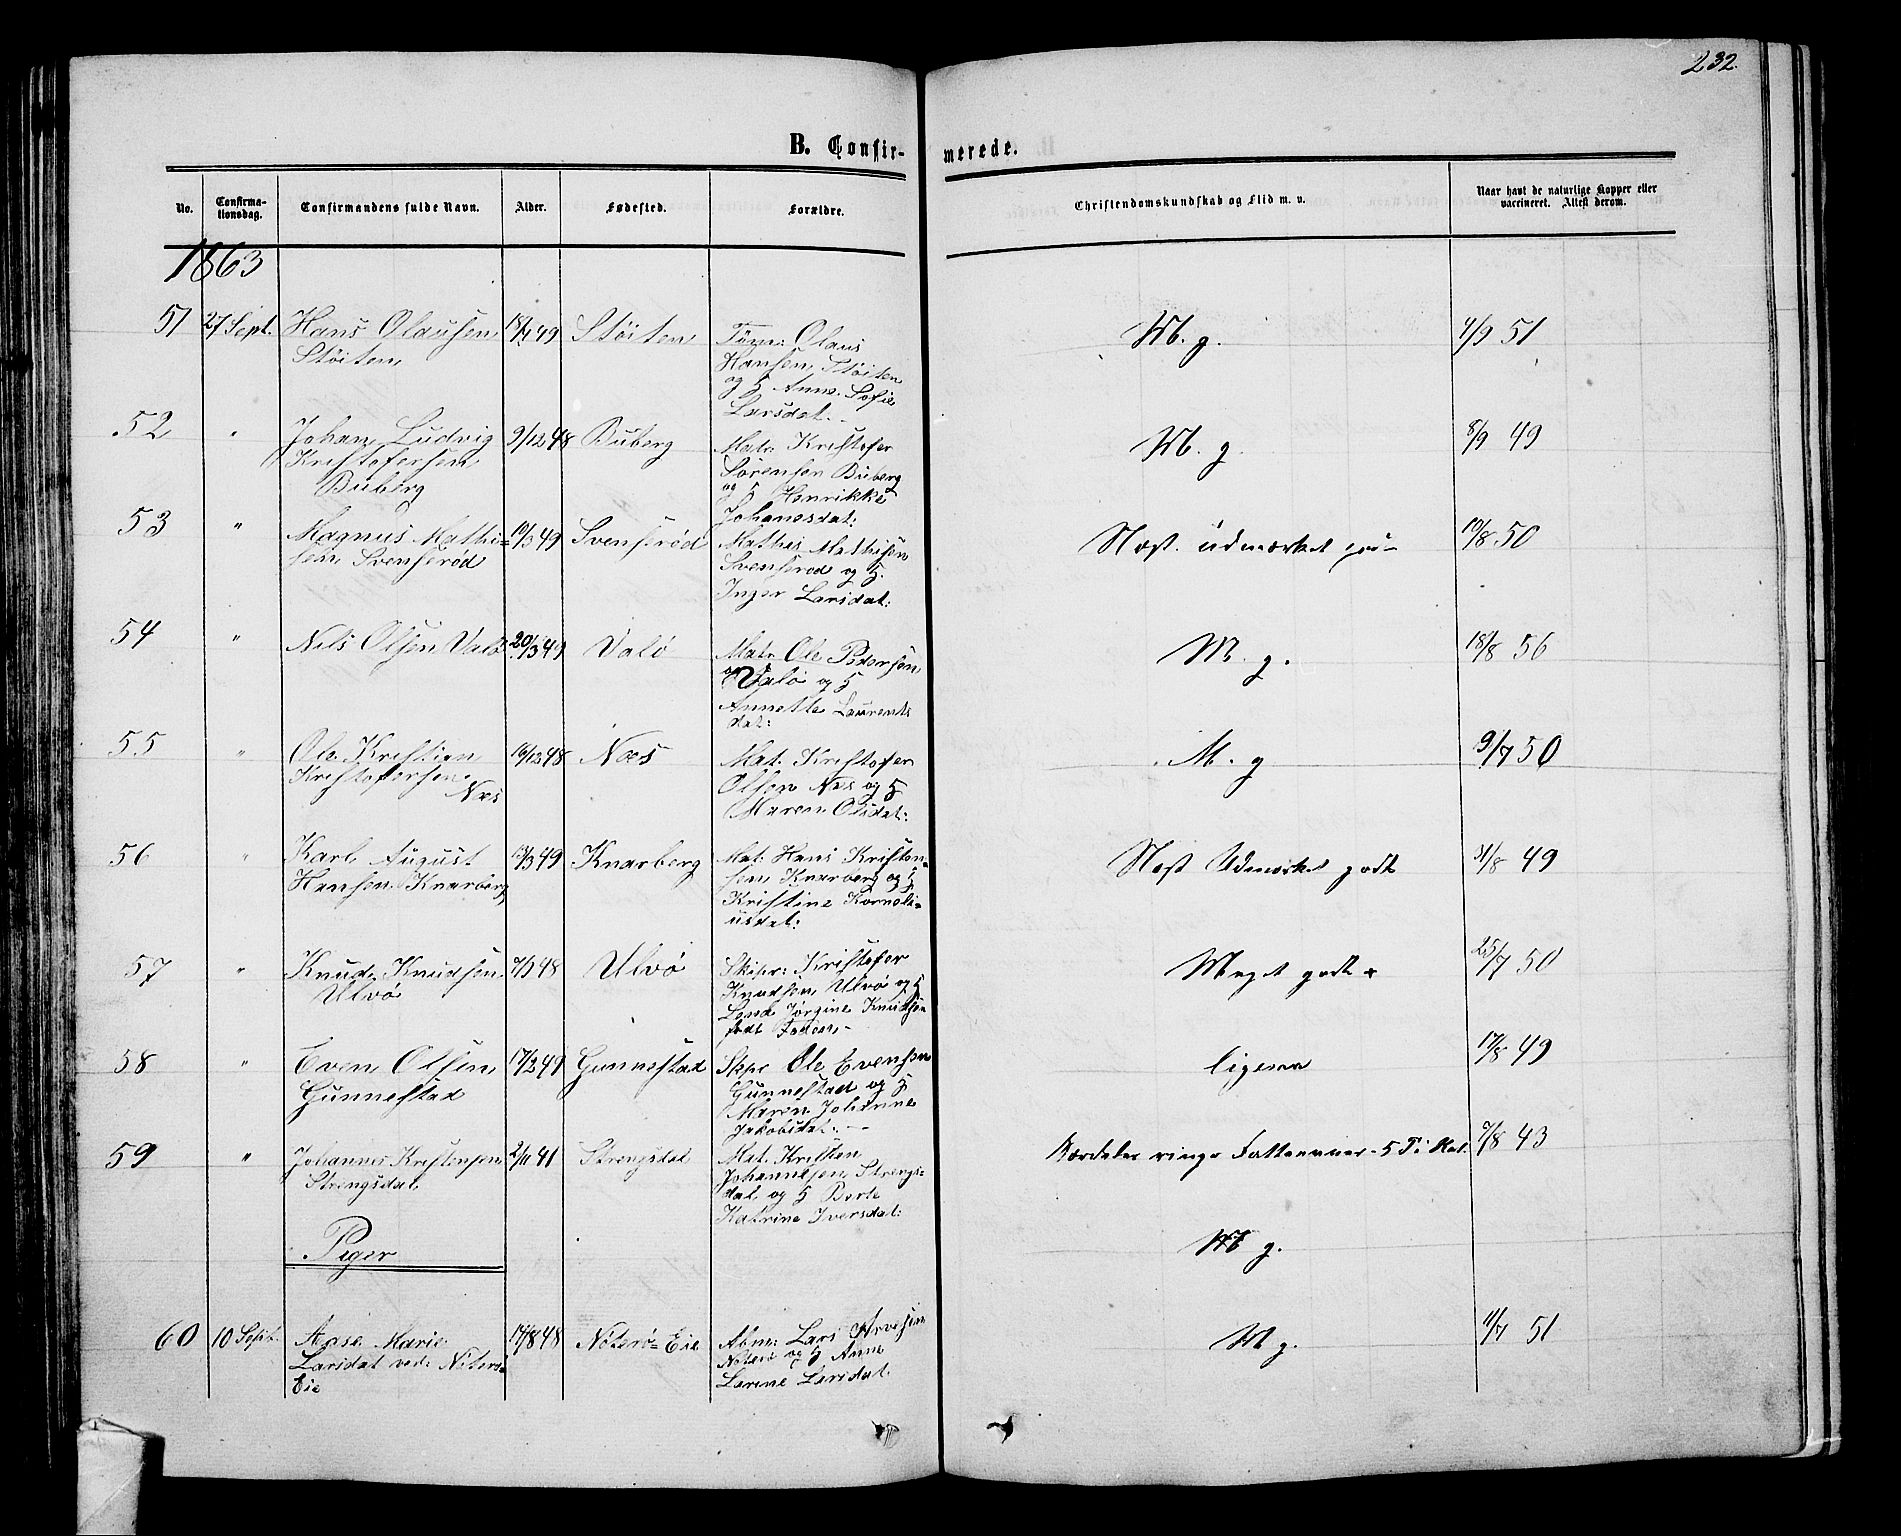 232.
B. Confirmerede.
No.
Confirmationsdag.
Confirmandens fulde Navn.
Alder.
Fødested.
Forældre.
Christendomskundskab og Flid m. v.
Naar havt de naturlige Kopper eller
vaccineret. Attest derom.
1863
51 27 Sept. Hans Olausen 49 Støiten Tøm: Olaus M. g. 51
Støiten Hansen Støiten
og H Anne Sofie
Larsdat.
52 " Johan Ludvig 9/12 48 Buberg Matr. Kristofer M. g. 8/9 49
Kristofersen Sørensen Buberg
Buberg og H Henrikke
Johanesdat:
53 " Magnus Mathi= 10/3 49 Svenserød Mathis Mathisen Næst. udmærket 10/8 50
sen Svenserød Svenserød og H.
Inger Larsdat:
54 " Nils Olsen Valø 20/3 49 Valø Matr. Ole Pedersen M. g. 18/8 56
Valø og H
Annette Laurents
dat:
55 " Ole Kristian 16/12 48 Næs Mat. Kristofer M. g 9/7 50
Kristofersen Olsen Næs og H
Næs Maren Olsdat:
56 " Karl August 49 Knarberg Mat: Hans Kristen= Næst Udmærket godt 31/8 49
Hansen Knarberg sen Knarberg og H
Kristine Korneli=
usdat:
57 " Knud Knudsen 7/3 48 Ulvø Skipr: Kristofer Meget godt 25/7 50
Ulvø Knudsen Ulvø og H
Jørgine Knudsen
født
58 " Even Olsen 17/2 49 Gunnestad Skpr Ole Evensen ligesaa 17/8 49
Gunnestad Gunnestad og H
Maren Johanne
Jakobsdat:
59 " Johannes Kristensen 2/11 41 Strengsdal Mat. Kristen 7/8 43
Strengsdal Johannesen Strengs=
dal og H Berte
Katrine Iversdat:
Piger
M g.
60 10 Sept. Aase Marie 14/8 48 Nøterø= Eie Lars M g. 11/7 51
Larsdat ved: Nøterø= Nøterø og H Anne
Eie Larine Larsdat.